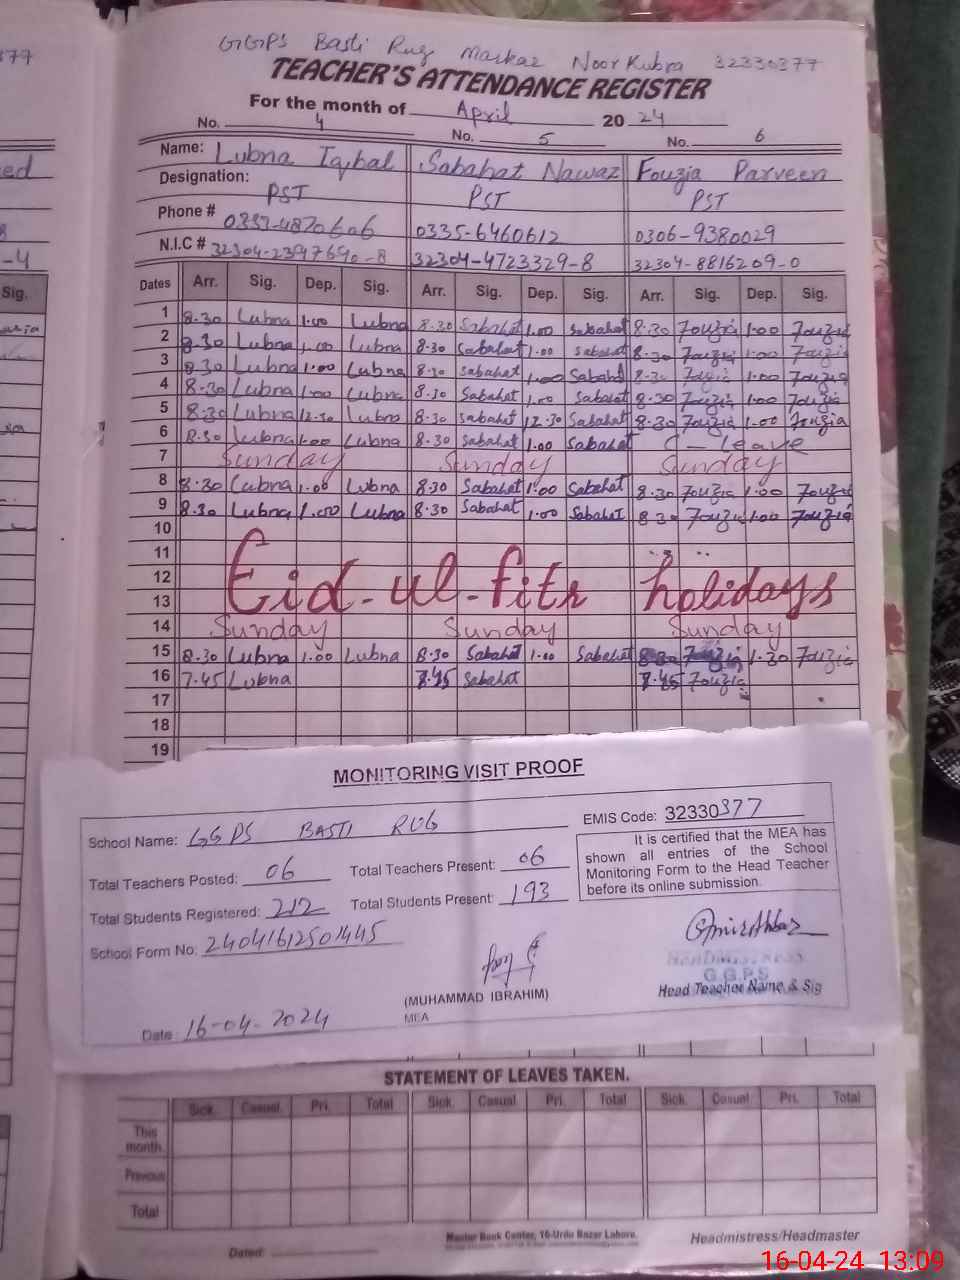 GGPS Basti Rug Markaz Noor Kubra 32330377
TEACHER'S ATTENDANCE REGISTER
For the month of April 20 24
No. 4 No. 5 No. 6
Name: Lubna Iqbal Sabahat Nawaz Fouzia Parveen
Designation: PST PST PST
Phone # 0335-6460612 0306-9380029
N.I.C # 32304-2397690-8 32304-4723329-8 32304-8816209-0
Dates Arr. Sig. Dep. Sig. Arr. Sig. Dep. Sig. Arr. Sig. Dep. Sig.
1 8.30 Lubna 1.00 Lubna 8.30 Sabahat 1.00 Sabahat 8.30 Fouzia 1.00 Fouzia
2 8.30 Lubna 1.00 Lubna 8.30 Sabahat 1.00 Sabahat 8.30 Fouzia 1.00 Fouzia
3 8.30 Lubna 1.00 Lubna 8.30 Sabahat 1.00 Sabahat 8.30 Fouzia 1.00 Fouzia
4 8.30 Lubna 1.00 Lubna 8.30 Sabahat 1.00 Sabahat 8.30 Fouzia 1.00 Fouzia
5 8.30 Lubna 12.30 Lubna 8.30 Sabahat 12.30 Sabahat 8.30 Fouzia 1.00 Fouzia
6 8.30 Lubna 1.00 Lubna 8.30 Sabahat 1.00 Sabahat C-Leave
7 Sunday Sunday Sunday
8 8.30 Lubna 1.00 Lubna 8.30 Sabahat 1.00 Sabahat 8.30 Fouzia 1.00 Fouzia
9 8.30 Lubna 1.00 Lubna 8.30 Sabahat 1.00 Sabahat 8.30 Fouzia 1.00 Fouzia
10
11
12 Eid-ul-fitr holidays
13
14 Sunday Sunday Sunday
15 8.30 Lubna 1.00 Lubna 8.30 Sabahat 1.00 Sabahat 8.30 Fouzia 1.30 Fouzia
16 7.45 Lubna 7.45 Sabahat 7.45 Fouzia
17
18
19
MONITORING VISIT PROOF
School Name: GGPS BASTI RUG EMIS Code: 32330377
Total Teachers Posted: 06 Total Teachers Present: 06
Total Students Registered: 212 Total Students Present: 193
School Form No: 24041612501445
It is certified that the MEA has
shown all entries of the School
Monitoring Form to the Head Teacher
before its online submission.
HEADMISTRESS
G.G.P.S
(MUHAMMAD IBRAHIM) Head Teacher Name & Sig
MEA
Date: 16-04-2024
STATEMENT OF LEAVES TAKEN.
Sick. Casual Pri. Total Sick. Casual Pri. Total Sick. Casual Pri. Total
This
month.
Previous
Total
Master Book Center, 16-Urdu Bazar Lahore.
Dated: Headmistress/Headmaster
16-04-24 13:09